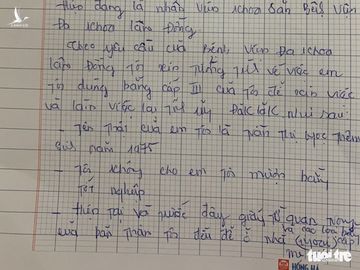 Hiện đang là nhân viên khoa Sản Bệnh viện
Đa khoa Lâm Đồng
Theo yêu cầu của Bệnh viện Đa khoa
Lâm Đồng tôi xin tường trình về việc em
tôi dùng bằng cấp III của tôi để xin việc
và làm việc tại tỉnh ủy Đắk Lắk như sau:
- Tên thật của em tôi là Trần Thị Ngọc Thêm
sinh năm 1975
- Tôi không cho em tôi mượn bằng
tốt nghiệp
- Hiện tại và trước đây giấy tờ quan trọng
và các loại bằng
của bản thân tôi đều để ở nhà cấp
HỒNG HÀ
tuổi trẻ